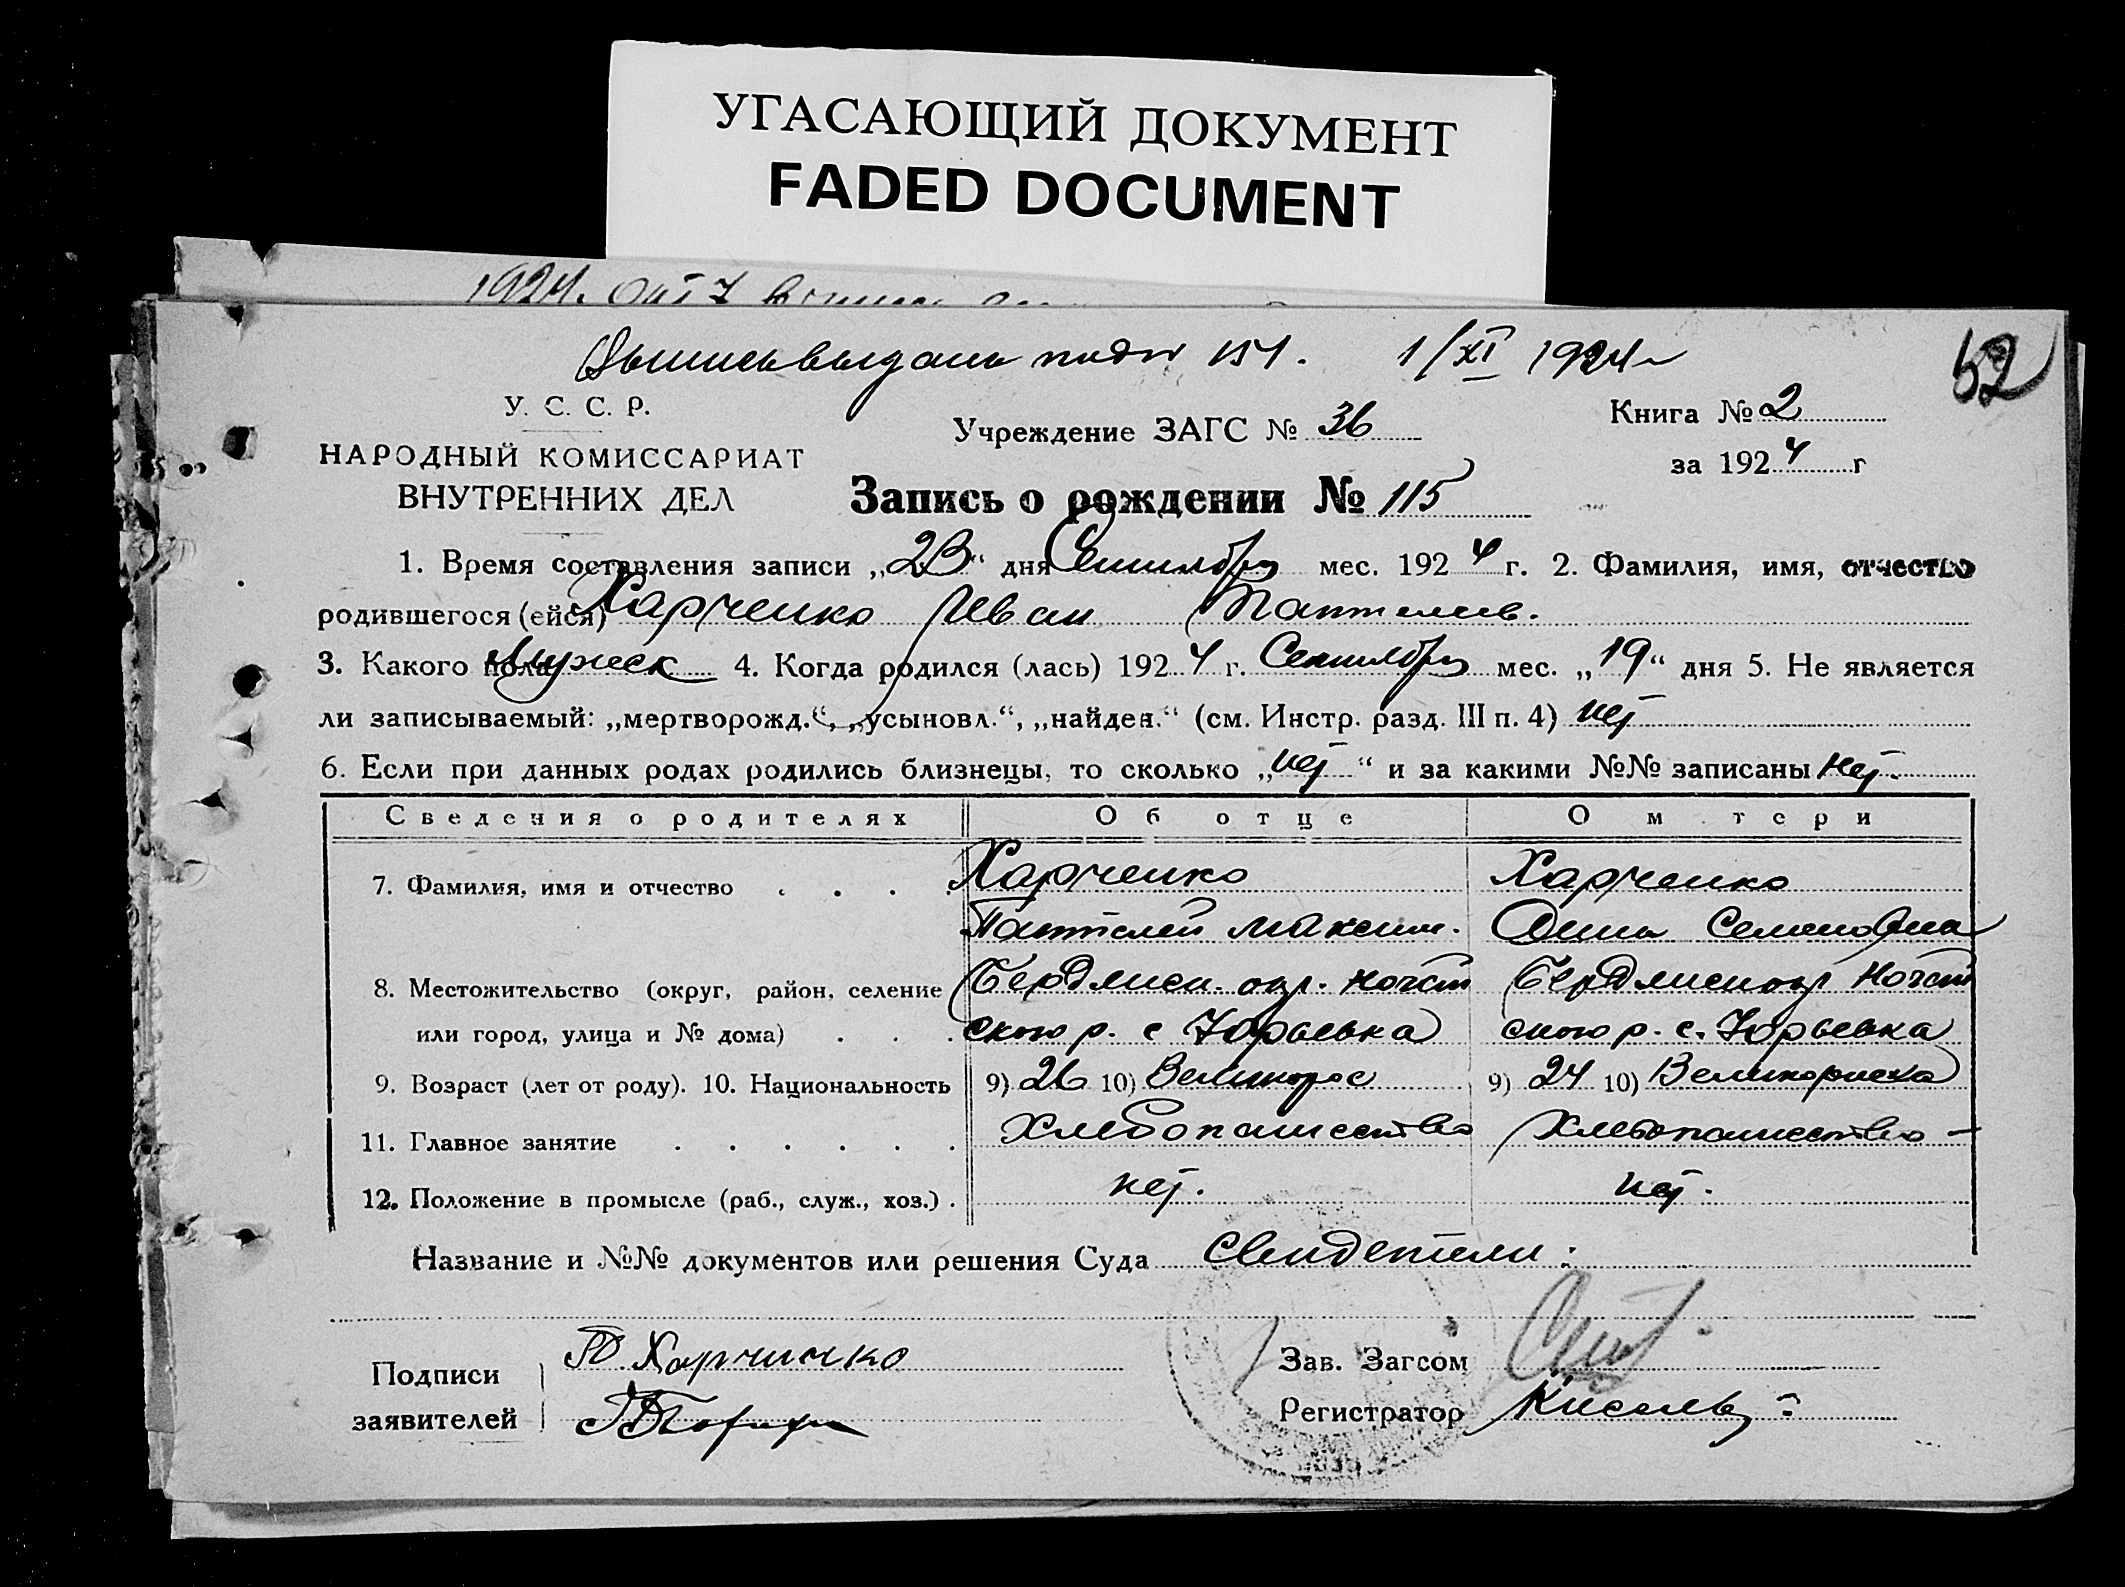 УГАСАЮЩИЙ ДОКУМЕНТ
FADED DOCUMENT
1924.
Выпись выдана под № 151. 1/XI 1924 г
52
У. С. С. Р.
НАРОДНЫЙ КОМИССАРИАТ
ВНУТРЕННИХ ДЕЛ
Учреждение ЗАГС № 36
Книга № 2
за 1924 г
Запись о рождении № 115
1. Время составления записи „23“ дня Сентября мес. 1924 г. 2. Фамилия, имя, отчество
родившегося (ейся) Харченко Иван Пантелеев.
3. Какого пола Мужеск 4. Когда родился (лась) 1924 г. Сентября мес. „19“ дня 5. Не является
ли записываемый: „мертворожд.“, „усыновл.“, „найден.“ (см. Инстр. разд. III п. 4) нет
6. Если при данных родах родились близнецы, то сколько „нет“ и за какими №№ записаны нет.
Сведения о родителях Об отце О м тери
7. Фамилия, имя и отчество . . . . Харченко Харченко
Пантелей Максим. Анна Семеновна
8. Местожительство (округ, район, селение Бердянск. окр. Ногай Бердянск окр Ногай
или город, улица и № дома) . . . ского р. с Юрьевка ского р. с. Юрьевка
9. Возраст (лет от роду). 10. Национальность 9) 26 10) Великорос 9) 24 10) Великоросска
11. Главное занятие . . . . . . Хлебопашество Хлебопашество
12. Положение в промысле (раб., служ., хоз.) . нет. нет.
Название и №№ документов или решения Суда Свидетели:
Подписи
заявителей
П Харчинко
Зав. Загсом
Регистратор Кисель